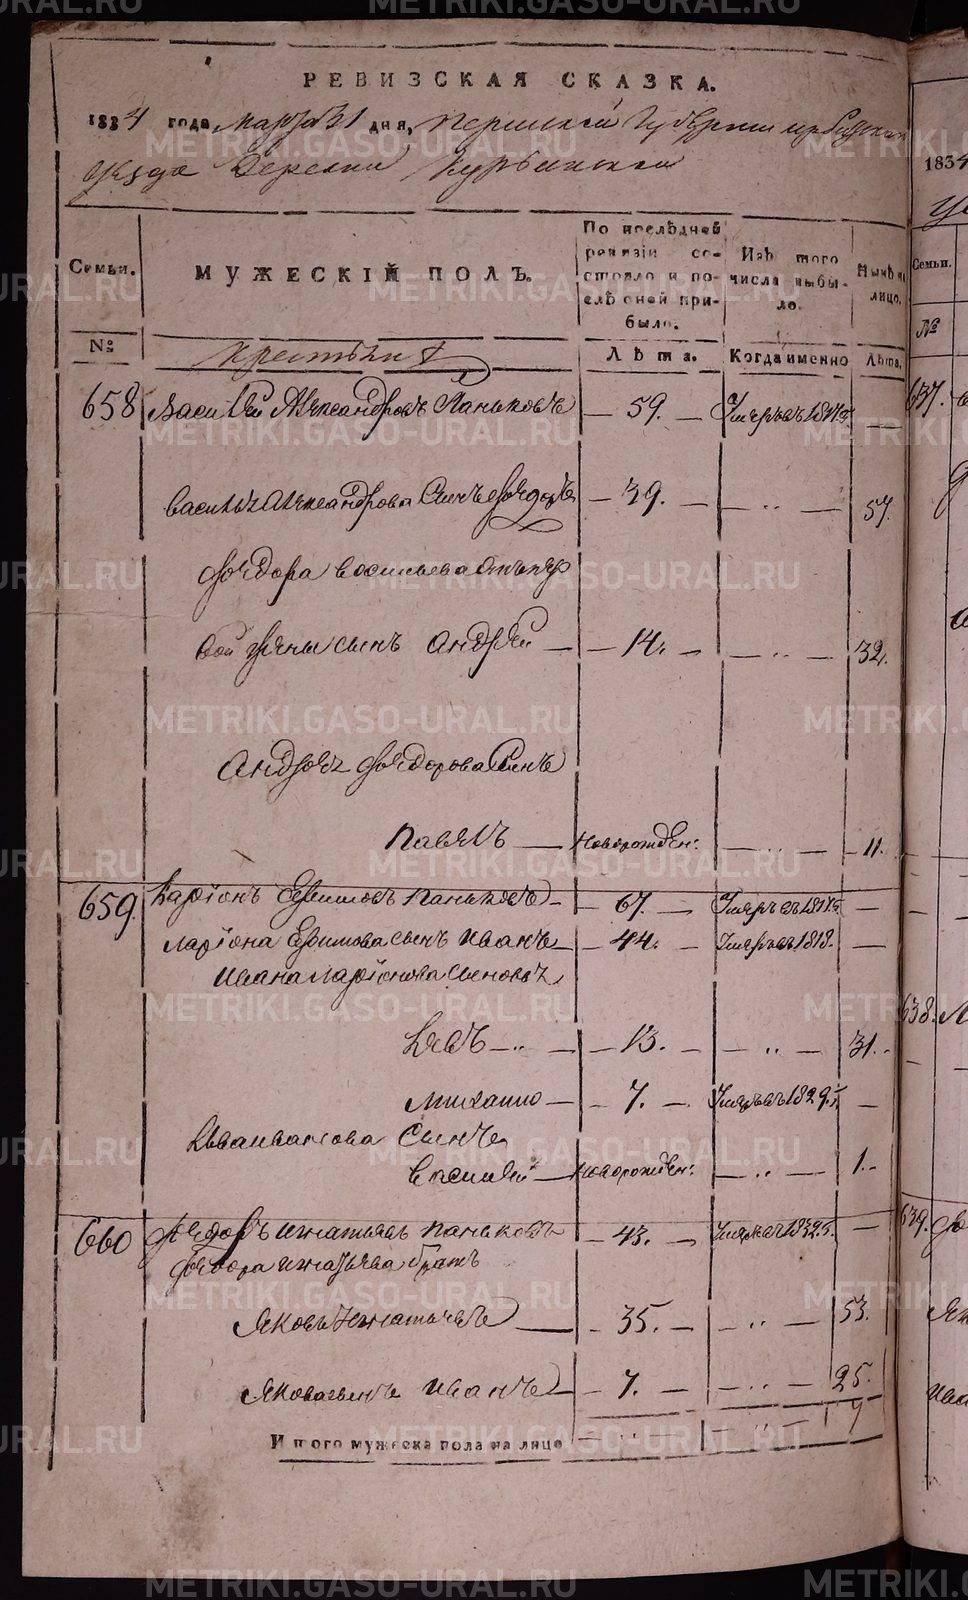 РЕВИЗСКАЯ СКАЗКА.
1834 года, марта 31 дня, Пермской Губернии Ирбитскаго
уезда Деревни
Семьи.
МУЖЕСКІЙ ПОЛЪ.
По послѣдней ревизіи состояло и послѣ оной прибыло.
Изъ того числа выбыло.
Нынѣ на лицо.
№
Крестьяне
Лѣта.
Когда именно
Лѣта.
658 Василей Александровъ Паньковъ — 59. — Умеръ въ 1817. —
Василья Александрова сынъ Федоръ — 39. — — „ — 57.
Федора Васильева отъ пер
вой жены сынъ Андрей — — 14. — — „ — 32.
Андрея Федорова сынъ
Павелъ — Новорожден: — „ — 11.
659. Ларіонъ Ефимовъ Паньковъ — 67. — Умеръ въ —
Ларіона Ефимова сынъ Иванъ — 44. — Умеръ въ 1818. —
Ивана Ларіонова сыновья
Левъ — „ — — 13. — — „ — 31. —
Михайло — — 7. — Умеръ въ 1829. —
Льва Иванова сынъ
Василей — Новорожден: — „ — 1. —
660 Федоръ Игнатьевъ Паньковъ — 43. — Умеръ въ 1832. —
Федора Игнатьева братъ
Яковъ Игнатьевъ — — 35. — — „ — 53.
Якова сынъ Иванъ — — 7. — — „ — 25.
Итого мужеска пола на лицо — „ — „ — 9
1834
Семьи.
№
637.
638.
639.
METRIKI.GASO-URAL.RU